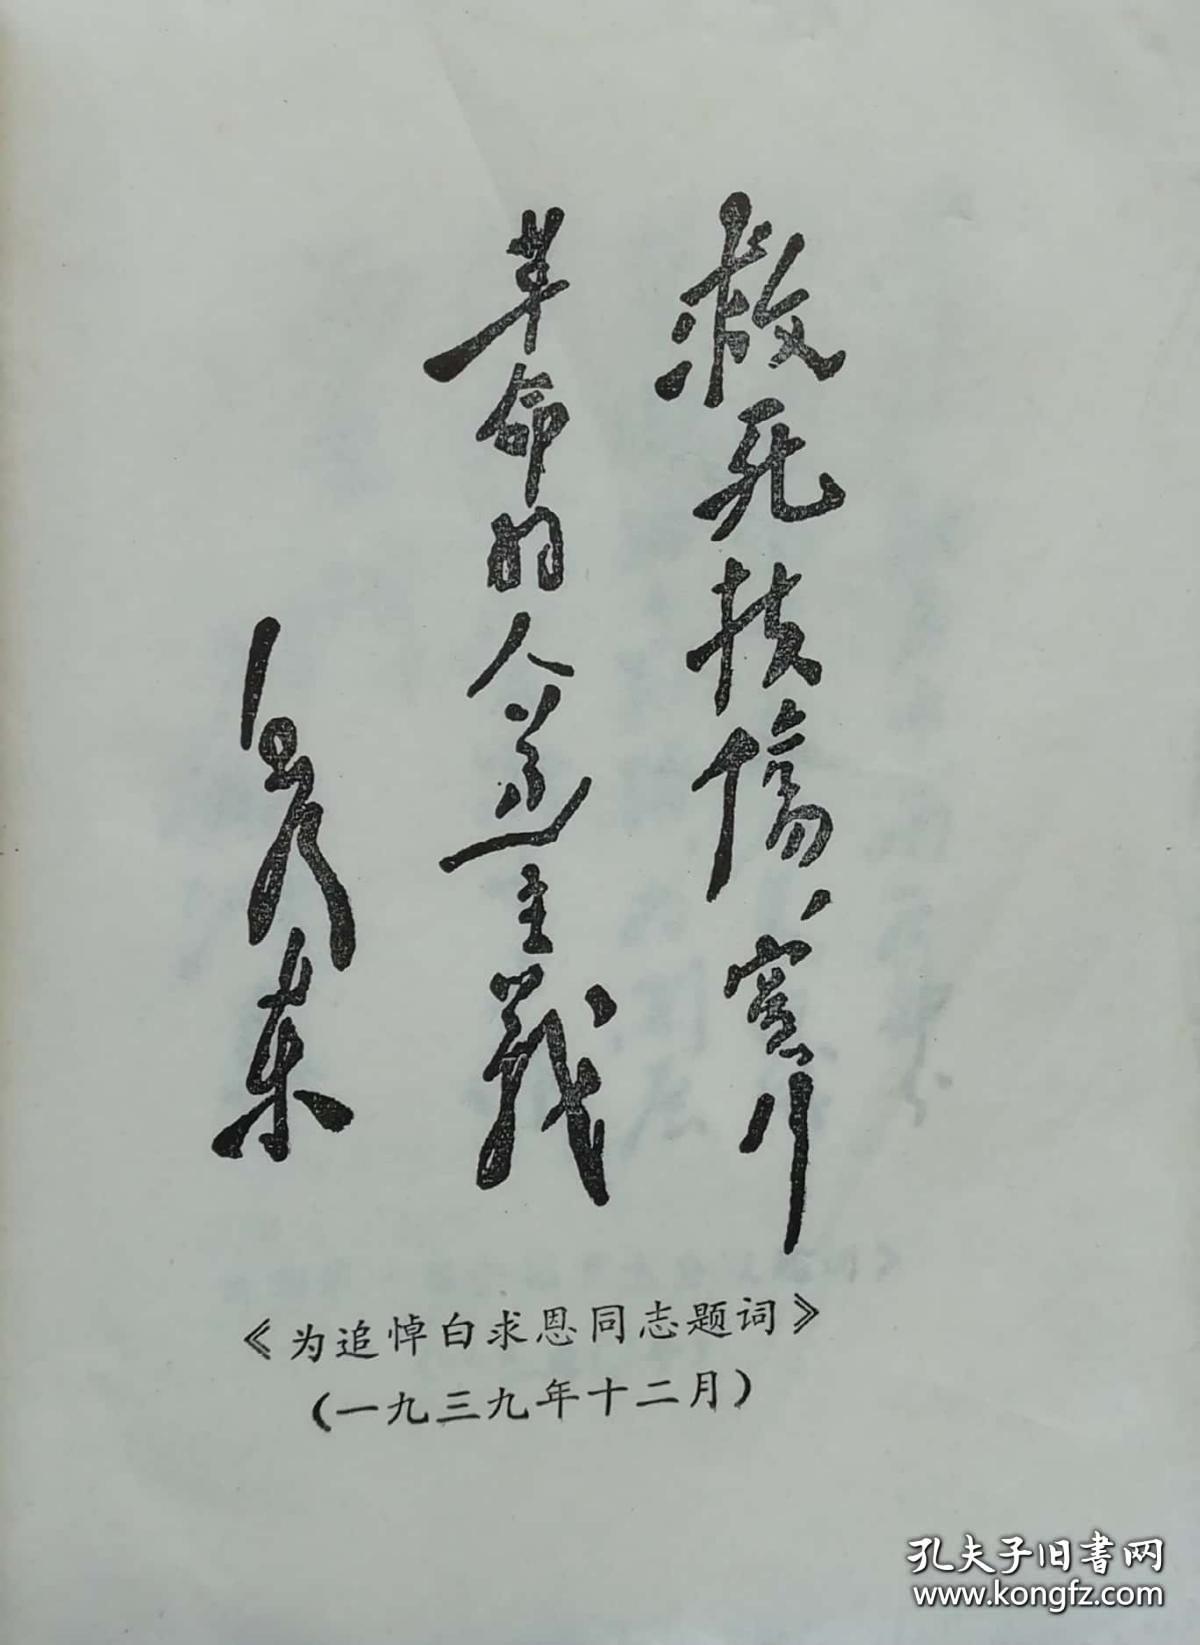 救死扶傷、实行
革命的人道主義
毛泽东
《为追悼白求恩同志题词》
(一九三九年十二月)
孔夫子旧書网
www.kongfz.com